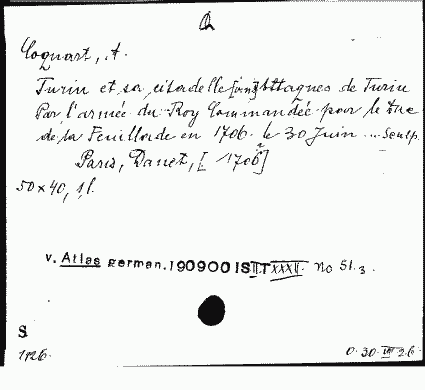 Coquart, A.
Turin et sa citadelle [avec] Attaques de Turin
Par l'armée du Roy Commandée par le Duc
de la Feuillade en 1706. le 30 Juin ... Sculp.
Paris, Danet, [1706]
50 x 40, 1 f.
v. Atlas german. 190900 IS II T XXXII. No 51.3.
S
1126.
0.30.VII 26.